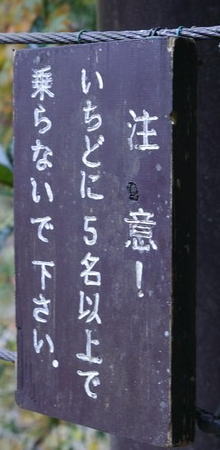 注意！
いちどに5名以上で
乗らないで下さい.